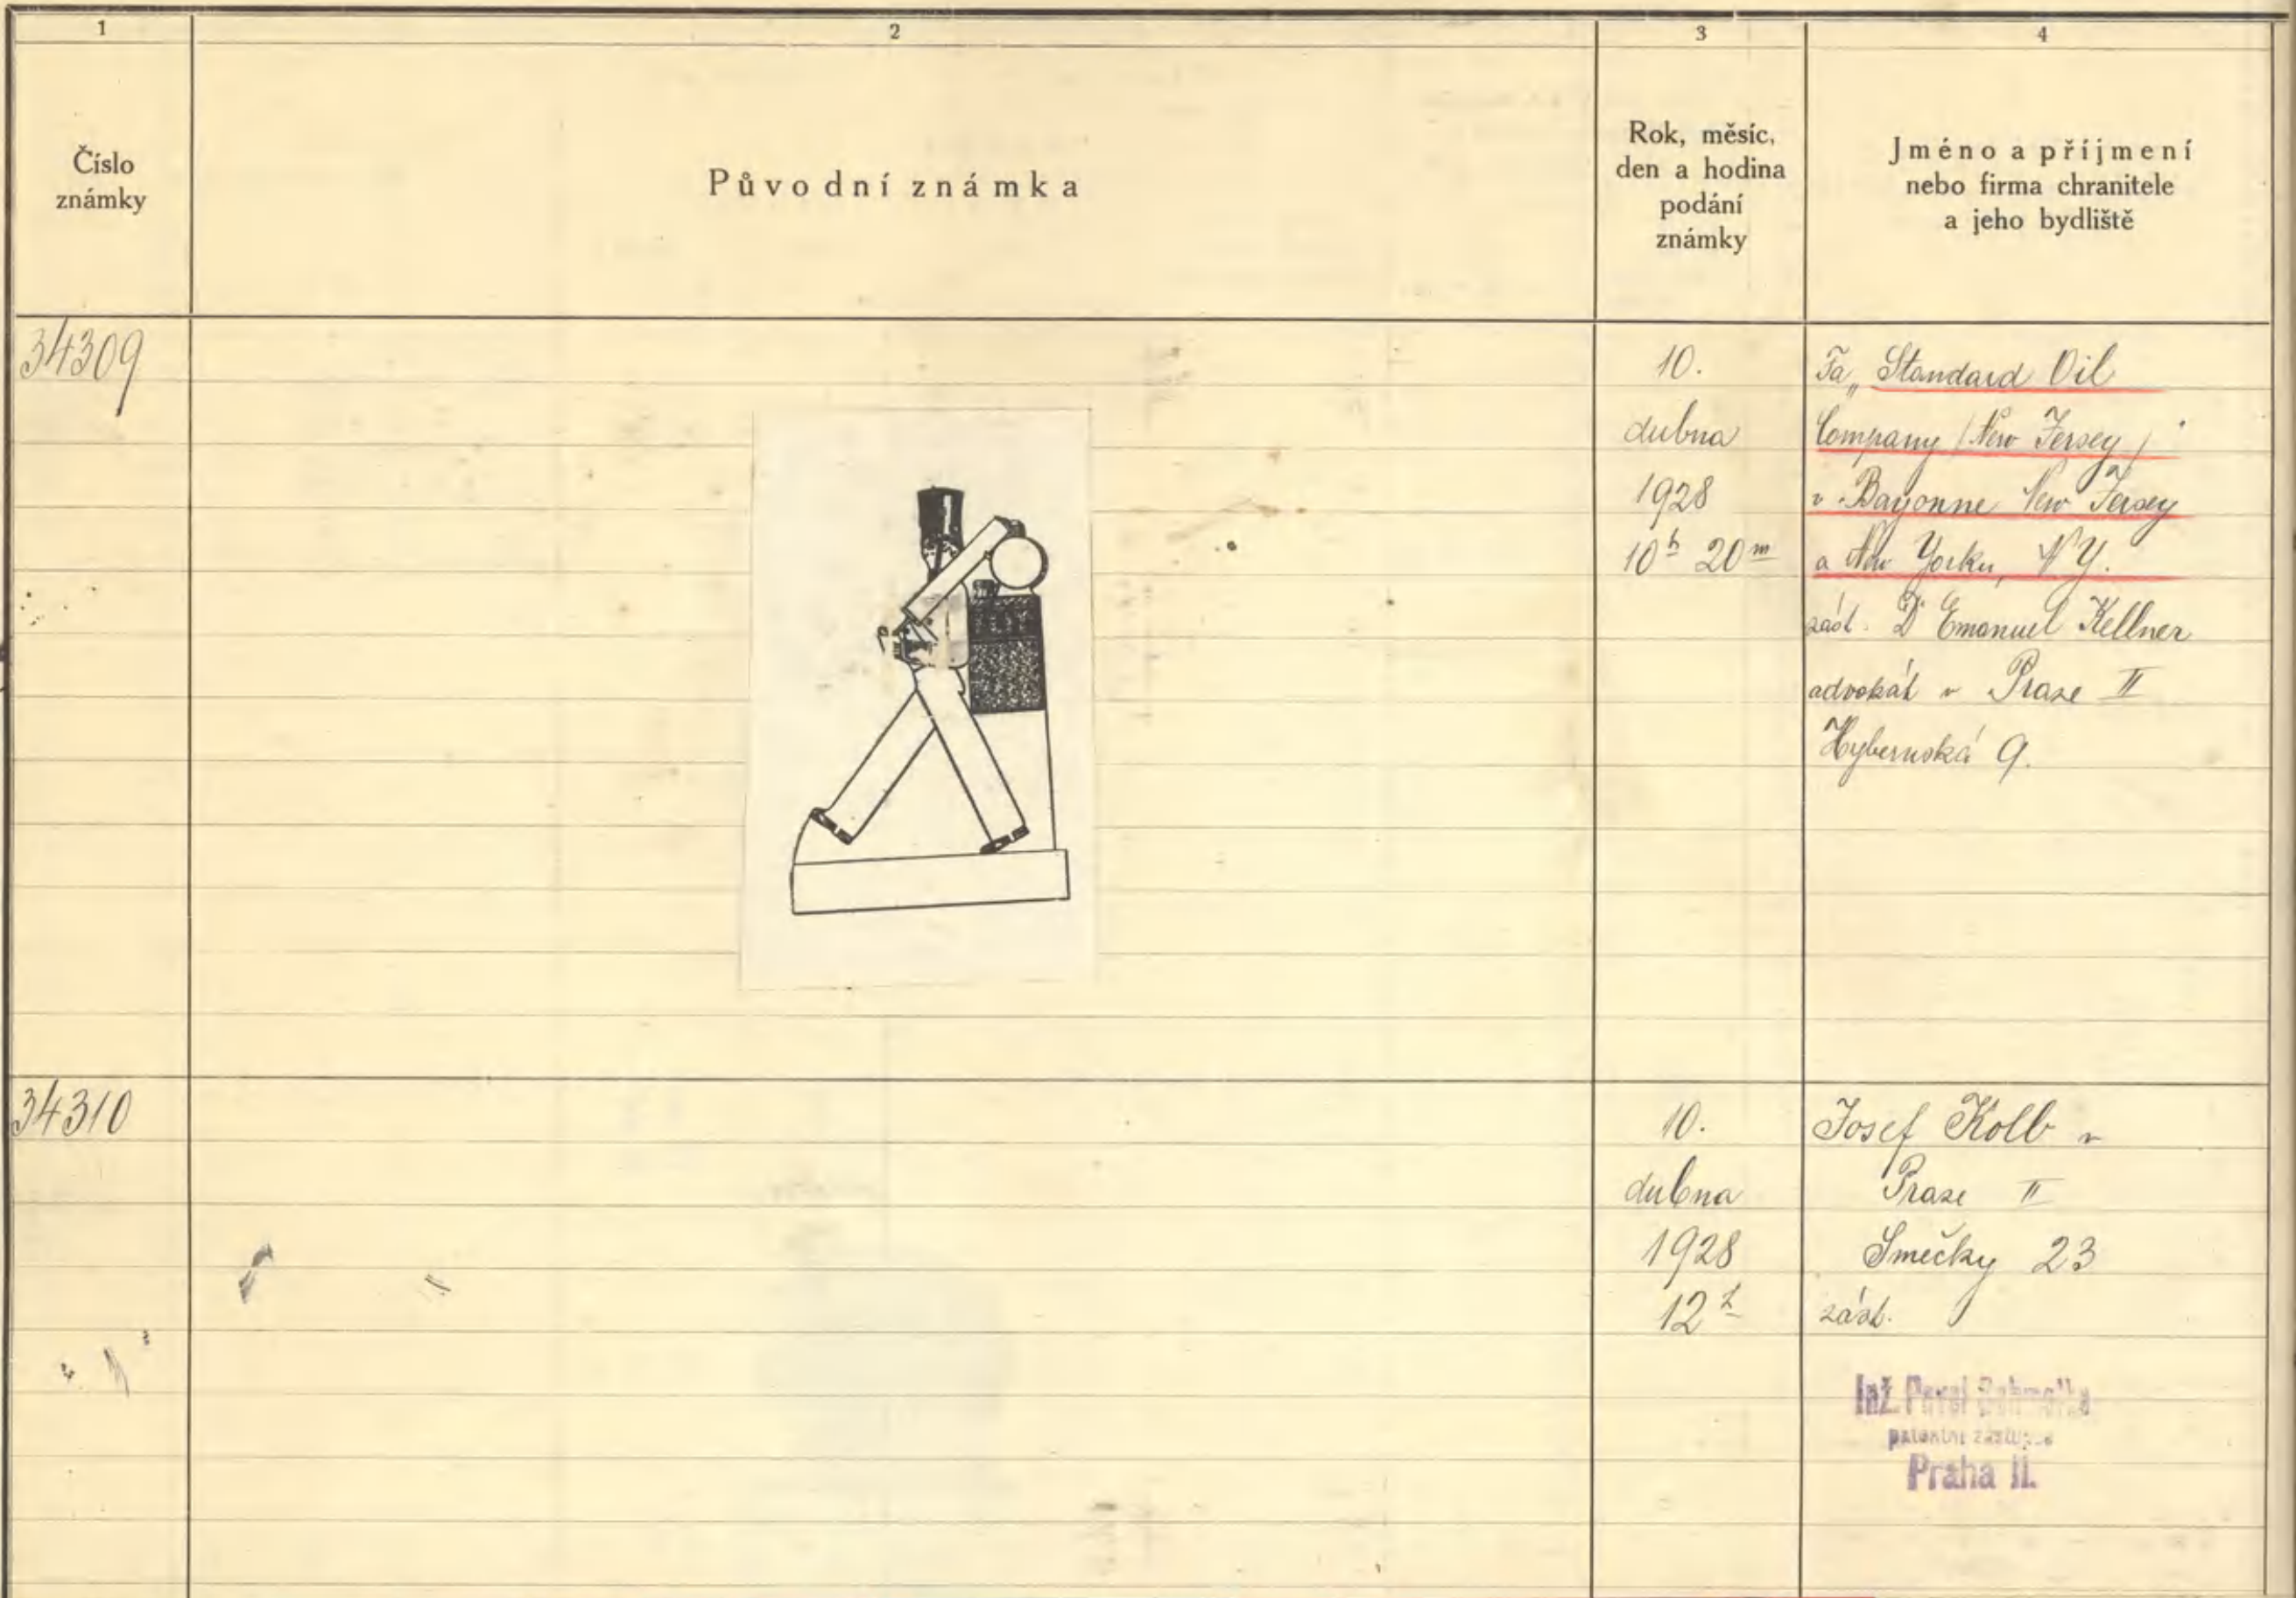 1
2
3
4
Číslo
známky
Původní známka
Rok, měsíc,
den a hodina
podání
známky
Jméno a příjmení
nebo firma chranitele
a jeho bydliště
34309
10.
dubna
1928
10h 20m
Fa „Standard Oil
Company /New Jersey/"
v Bayonne New Jersey
a New Yorku, N Y.
zást. Dr Emanuel Kellner
advokát v Praze II
Hybernská 9.
34310
10.
dubna
1928
12h
Josef Kolb v
Praze II
Smečky 23
zást.
Inž. Pavel
patentní zástupce
Praha II.